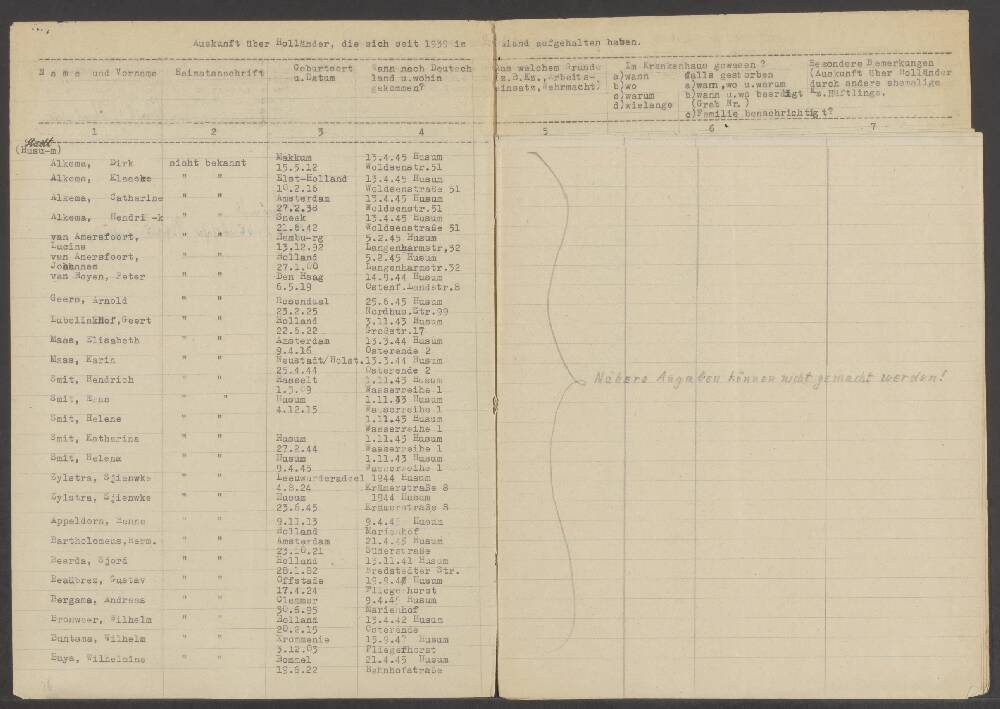 Auskunft über Holländer, die sich seit 1939 in land aufgehalten haben.
N a m e und Vorname Heimatanschrift Geburtsort Wann nach Deutsch Aus welchem Grunde Im Krankenhaus gewesen ? Besondere Bemerkungen
u.Datum land u.wohin (z.B.Kz.,Arbeits- a)wann falls gestorben (Auskunft über Holländer
gekommen? einsatz,Wehrmacht) b)wo a)wann,wo u.warum durch andere ehemalige
c)warum b)wann u.wo beerdigt Kz.Häftlinge.
d)wielange (Grab Nr.)
c)Familie benachrichtigt?
1 2 3 4 5 6 7
Stadt
(Husu-m)
Alkema, Dirk nicht bekannt Makkum 13.4.45 Husum
15.5.12 Woldsenstr.51
Alkema, Klaaske " " Elst-Holland 13.4.45 Husum
10.2.16 Woldsenstraße 51
Alkema, Catharine " " Amsterdam 13.4.45 Husum
27.2.38 Woldsenstr.51
Alkema, Hendri-k " " Sneek 13.4.45 Husum
21.6.42 Woldsenstraße 51
van Amersfoort, " " Hambu-rg 5.2.45 Husum
Lucine 13.12.92 Langenharmstr,32
van Amersfoort, " " Holland 5.2.45 Husum
Johannes 27.1.00 Langenharmstr.32
van Royen, Peter " " Den Haag 14.9.44 Husum
6.5.19 Ostenf.Landstr.8
Geers, Arnold " " Rosendaal 25.6.45 Husum
23.2.25 Nordhus.Str.99
Lubelinkhof,Geert " " Holland 3.11.43 Husum
22.6.22 Großstr.17
Maas, Elisabeth " " Amsterdam 13.3.44 Husum
9.4.16 Osterende 2
Maas, Karin " " Neustadt/Holst. 13.3.44 Husum
25.4.44 Osterende 2
Smit, Hendrich " " Hasselt 1.11.43 Husum
1.3.09 Wasserreihe 1
Smit, " " Husum 1.11.43 Husum
4.12.15 Wasserreihe 1
Smit, Helene " " 1.11.43 Husum
Wasserreihe 1
Smit, Katharina " " Husum 1.11.43 Husum
27.2.44 Wasserreihe 1
Smit, Helena " " Husum 1.11.43 Husum
9.4.45 Wasserreihe 1
Zylstra, Sjienwke " " Leeuwarderadeel 1944 Husum
4.8.24 Krämerstraße 8
Zylstra, Sjienwke " " Husum 1944 Husum
23.6.45 Krämerstraße 8
Appeldorn, Henne " " 9.11.13 9.4.45 Husum
Holland Marienhof
Bartholomeus,Herm. " " Amsterdam 21.4.45 Husum
23.10.21 Süderstraße
Beerda, Sjord " " Holland 13.11.41 Husum
28.1.82 Bredstedter Str.
Beaübrez, Gustav " " Offstade Husum
17.4.24 Fliegerhorst
Bergama, Andreas " " Clemmer 9.4.45 Husum
30.6.95 Marienhof
Bromweer, Wilhelm " " Holland 13.4.42 Husum
20.2.15 Osterende
Buntema, Wilhelm " " Krommenie Husum
3.12.03 Fliegerhorst
Buys, Wilhelmine " " Bommel 21.4.45 Husum
19.6.22 Bahnhofstraße
Nähere Angaben können nicht gemacht werden!